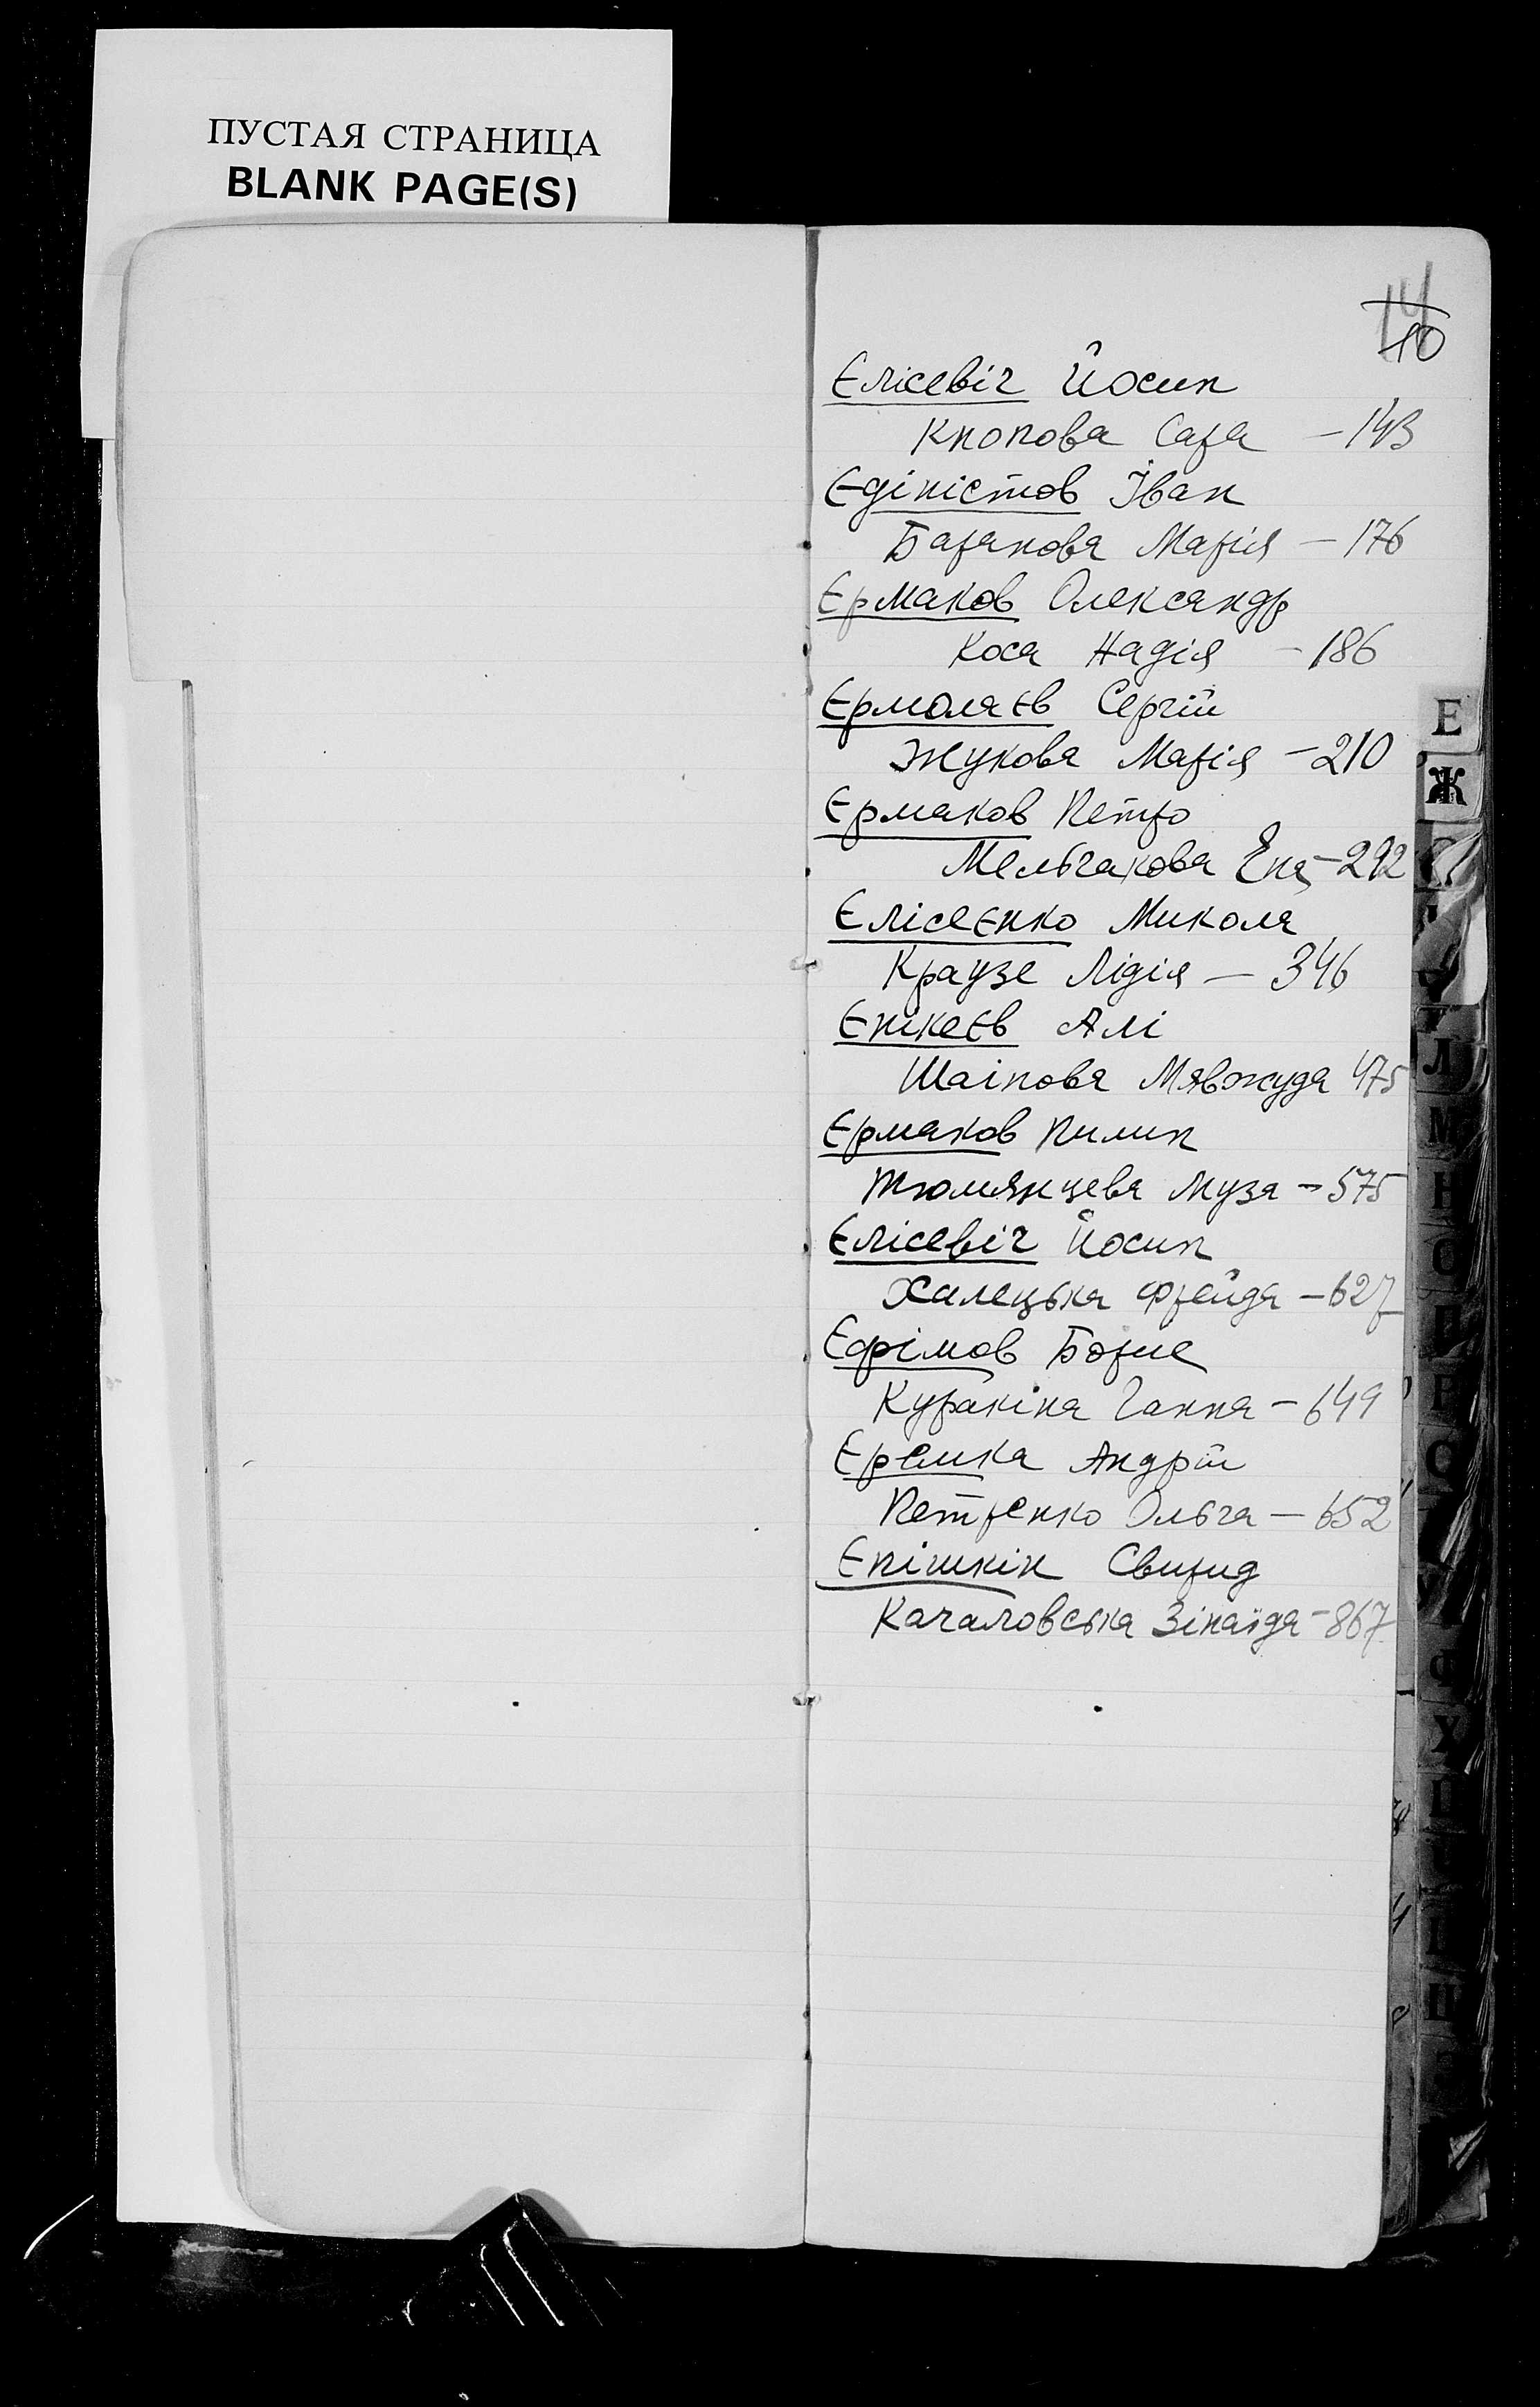 ПУСТАЯ СТРАНИЦА
BLANK PAGE(S)
14
10
Єлісевіч Йосип
Кнопова Сара – 143
Єдіністов Іван
Баранова Марія – 176
Єрмаков Олександр
Коса Надія – 186
Єрмоляєв Сергій
Жукова Марія – 210
Єрмаков Петро
Мельчакова – 292
Єлісеєнко Микола
Краузе Лідія – 346
Єнікеєв Алі
Шаіпова Мявжуда 475
Єрмаков Пилип
Тюмянцева Муза – 575
Єлісевіч Йосип
Халецька Фрейда – 627
Єфімов Борис
Куракіна Ганна – 649
Єрёмка Андрій
Петренко Ольга – 652
Єпішкін Свирид
Качаловська Зінаїда – 867
Е
Ж
Л
М
Н
О
П
Р
С
У
Ф
Х
Ц